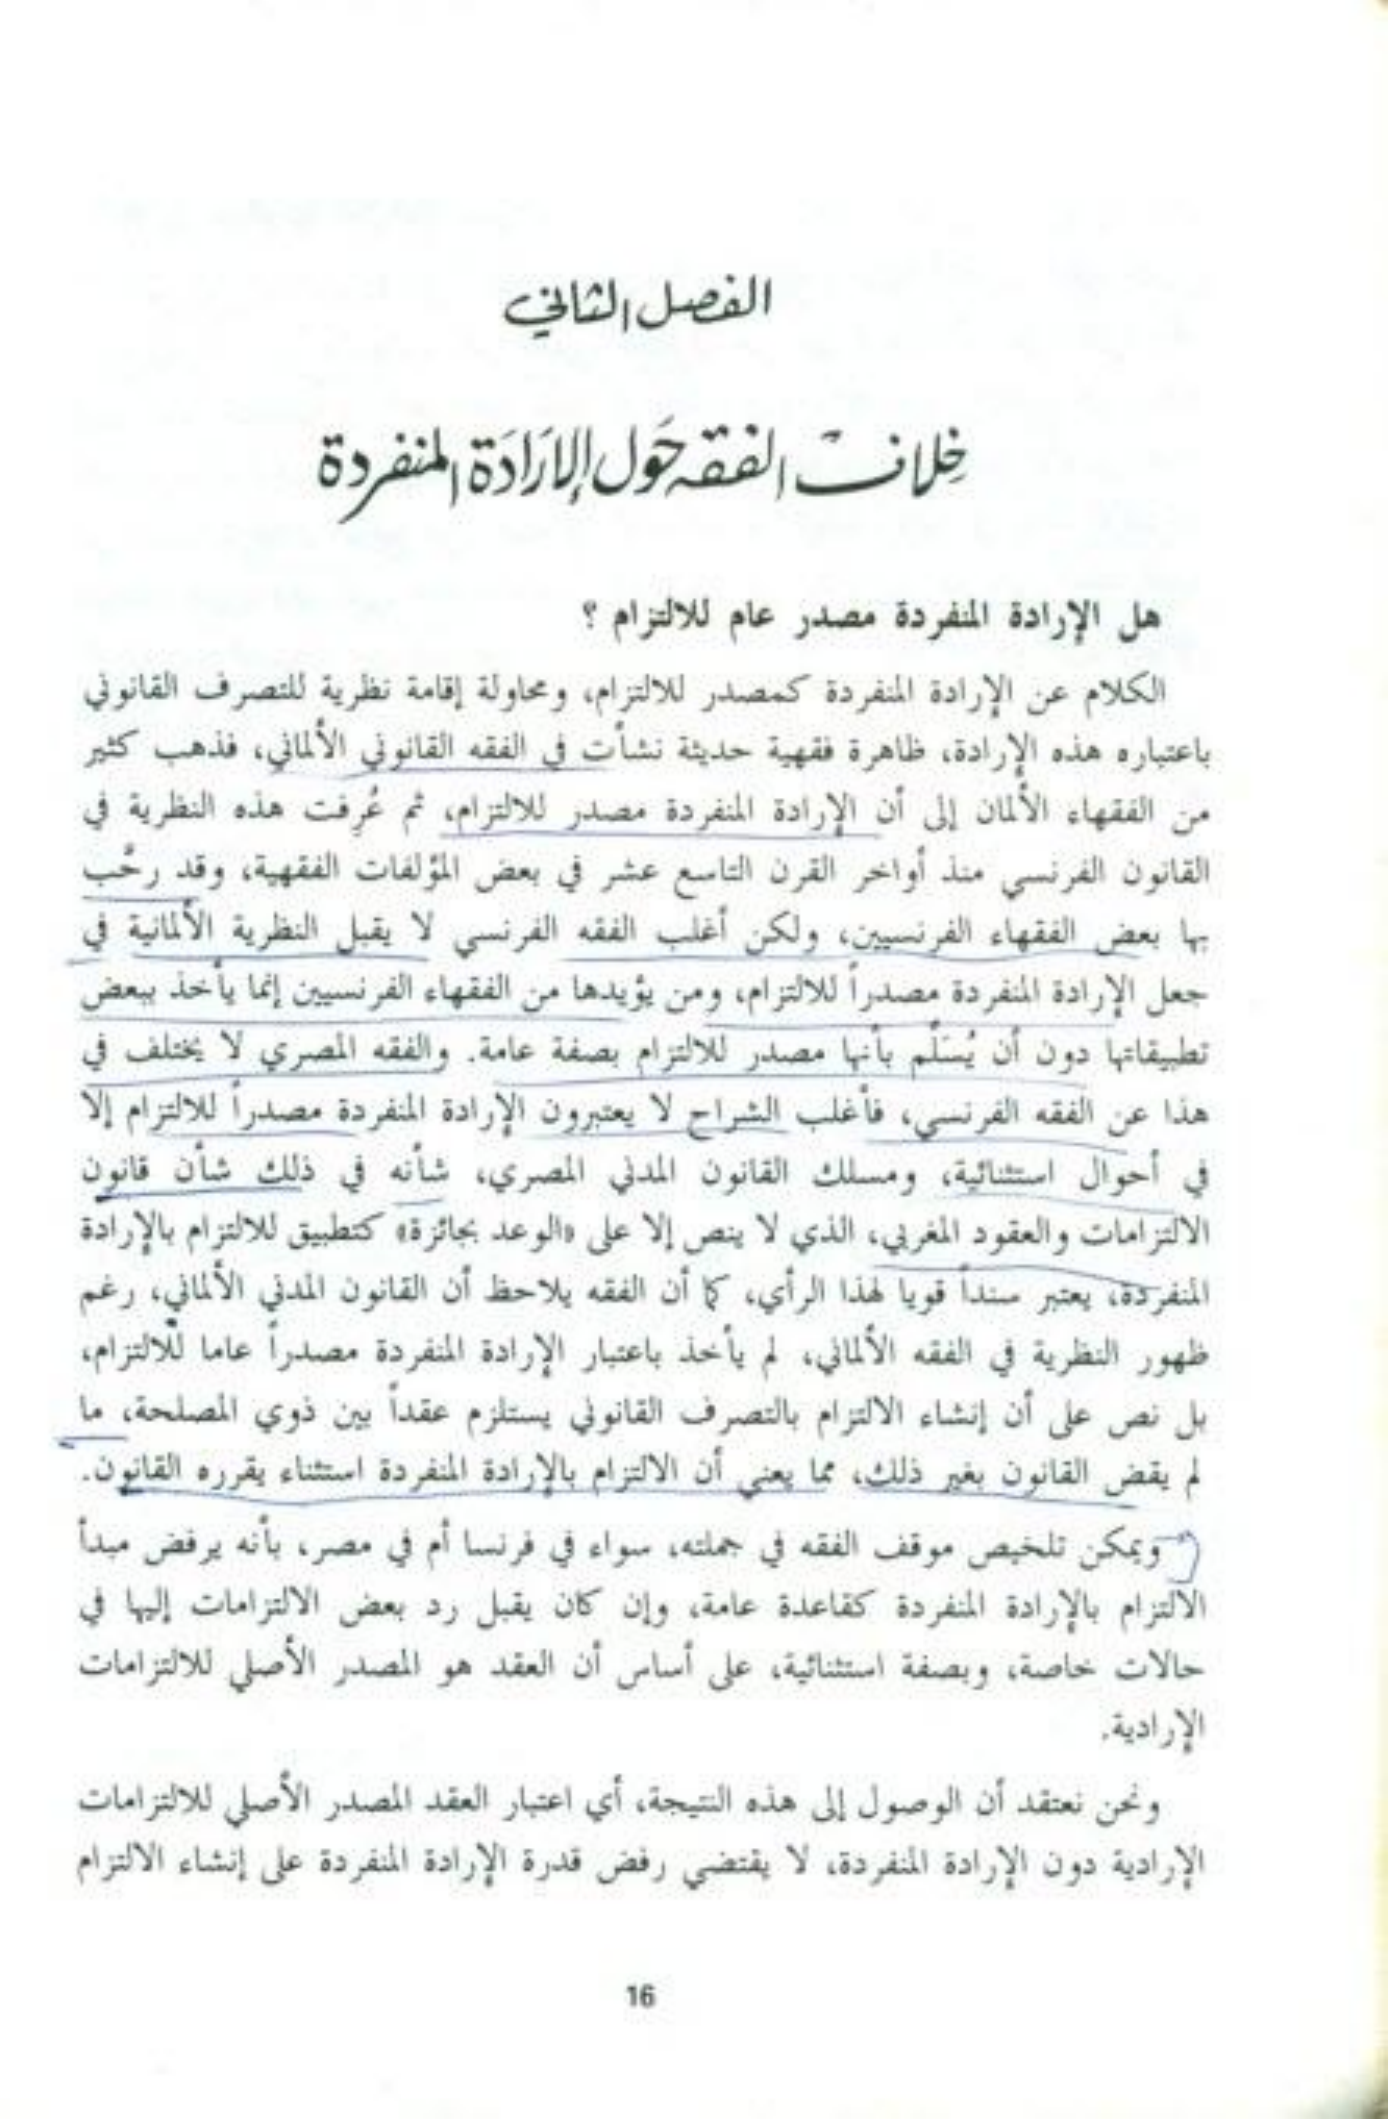 الفصل الثاني
خِلاف الفقه حَول الإرَادَة المنفردة
هل الإرادة المنفردة مصدر عام للالتزام ؟
الكلام عن الإرادة المنفردة كمصدر للالتزام، ومحاولة إقامة نظرية للتصرف القانوني
باعتباره هذه الإرادة، ظاهرة فقهية حديثة نشأت في الفقه القانوني الألماني، فذهب كثير
من الفقهاء الألمان إلى أن الإرادة المنفردة مصدر للالتزام، ثم عُرفت هذه النظرية في
القانون الفرنسي منذ أواخر القرن التاسع عشر في بعض المؤلفات الفقهية، وقد رحَّب
بها بعض الفقهاء الفرنسيين، ولكن أغلب الفقه الفرنسي لا يقبل النظرية الألمانية في
جعل الإرادة المنفردة مصدراً للالتزام، ومن يؤيدها من الفقهاء الفرنسيين إنما يأخذ ببعض
تطبيقاتها دون أن يُسَلَّم بأنها مصدر للالتزام بصفة عامة. والفقه المصري لا يختلف في
هذا عن الفقه الفرنسي، فأغلب الشراح لا يعتبرون الإرادة المنفردة مصدراً للالتزام إلا
في أحوال استثنائية، ومسلك القانون المدني المصري، شأنه في ذلك شأن قانون
الالتزامات والعقود المغربي، الذي لا ينص إلا على «الوعد بجائزة» كتطبيق للالتزام بالإرادة
المنفردة، يعتبر سنداً قويا لهذا الرأي، كما أن الفقه يلاحظ أن القانون المدني الألماني، رغم
ظهور النظرية في الفقه الألماني، لم يأخذ باعتبار الإرادة المنفردة مصدراً عاما للالتزام،
بل نص على أن إنشاء الالتزام بالتصرف القانوني يستلزم عقداً بين ذوي المصلحة، ما
لم يقض القانون بغير ذلك، مما يعني أن الالتزام بالإرادة المنفردة استثناء يقرره القانون.
ويمكن تلخيص موقف الفقه في جملته، سواء في فرنسا أم في مصر، بأنه يرفض مبدأ
الالتزام بالإرادة المنفردة كقاعدة عامة، وإن كان يقبل رد بعض الالتزامات إليها في
حالات خاصة، وبصفة استثنائية، على أساس أن العقد هو المصدر الأصلي للالتزامات
الإرادية.
ونحن نعتقد أن الوصول إلى هذه النتيجة، أي اعتبار العقد المصدر الأصلي للالتزامات
الإرادية دون الإرادة المنفردة، لا يقتضي رفض قدرة الإرادة المنفردة على إنشاء الالتزام
16